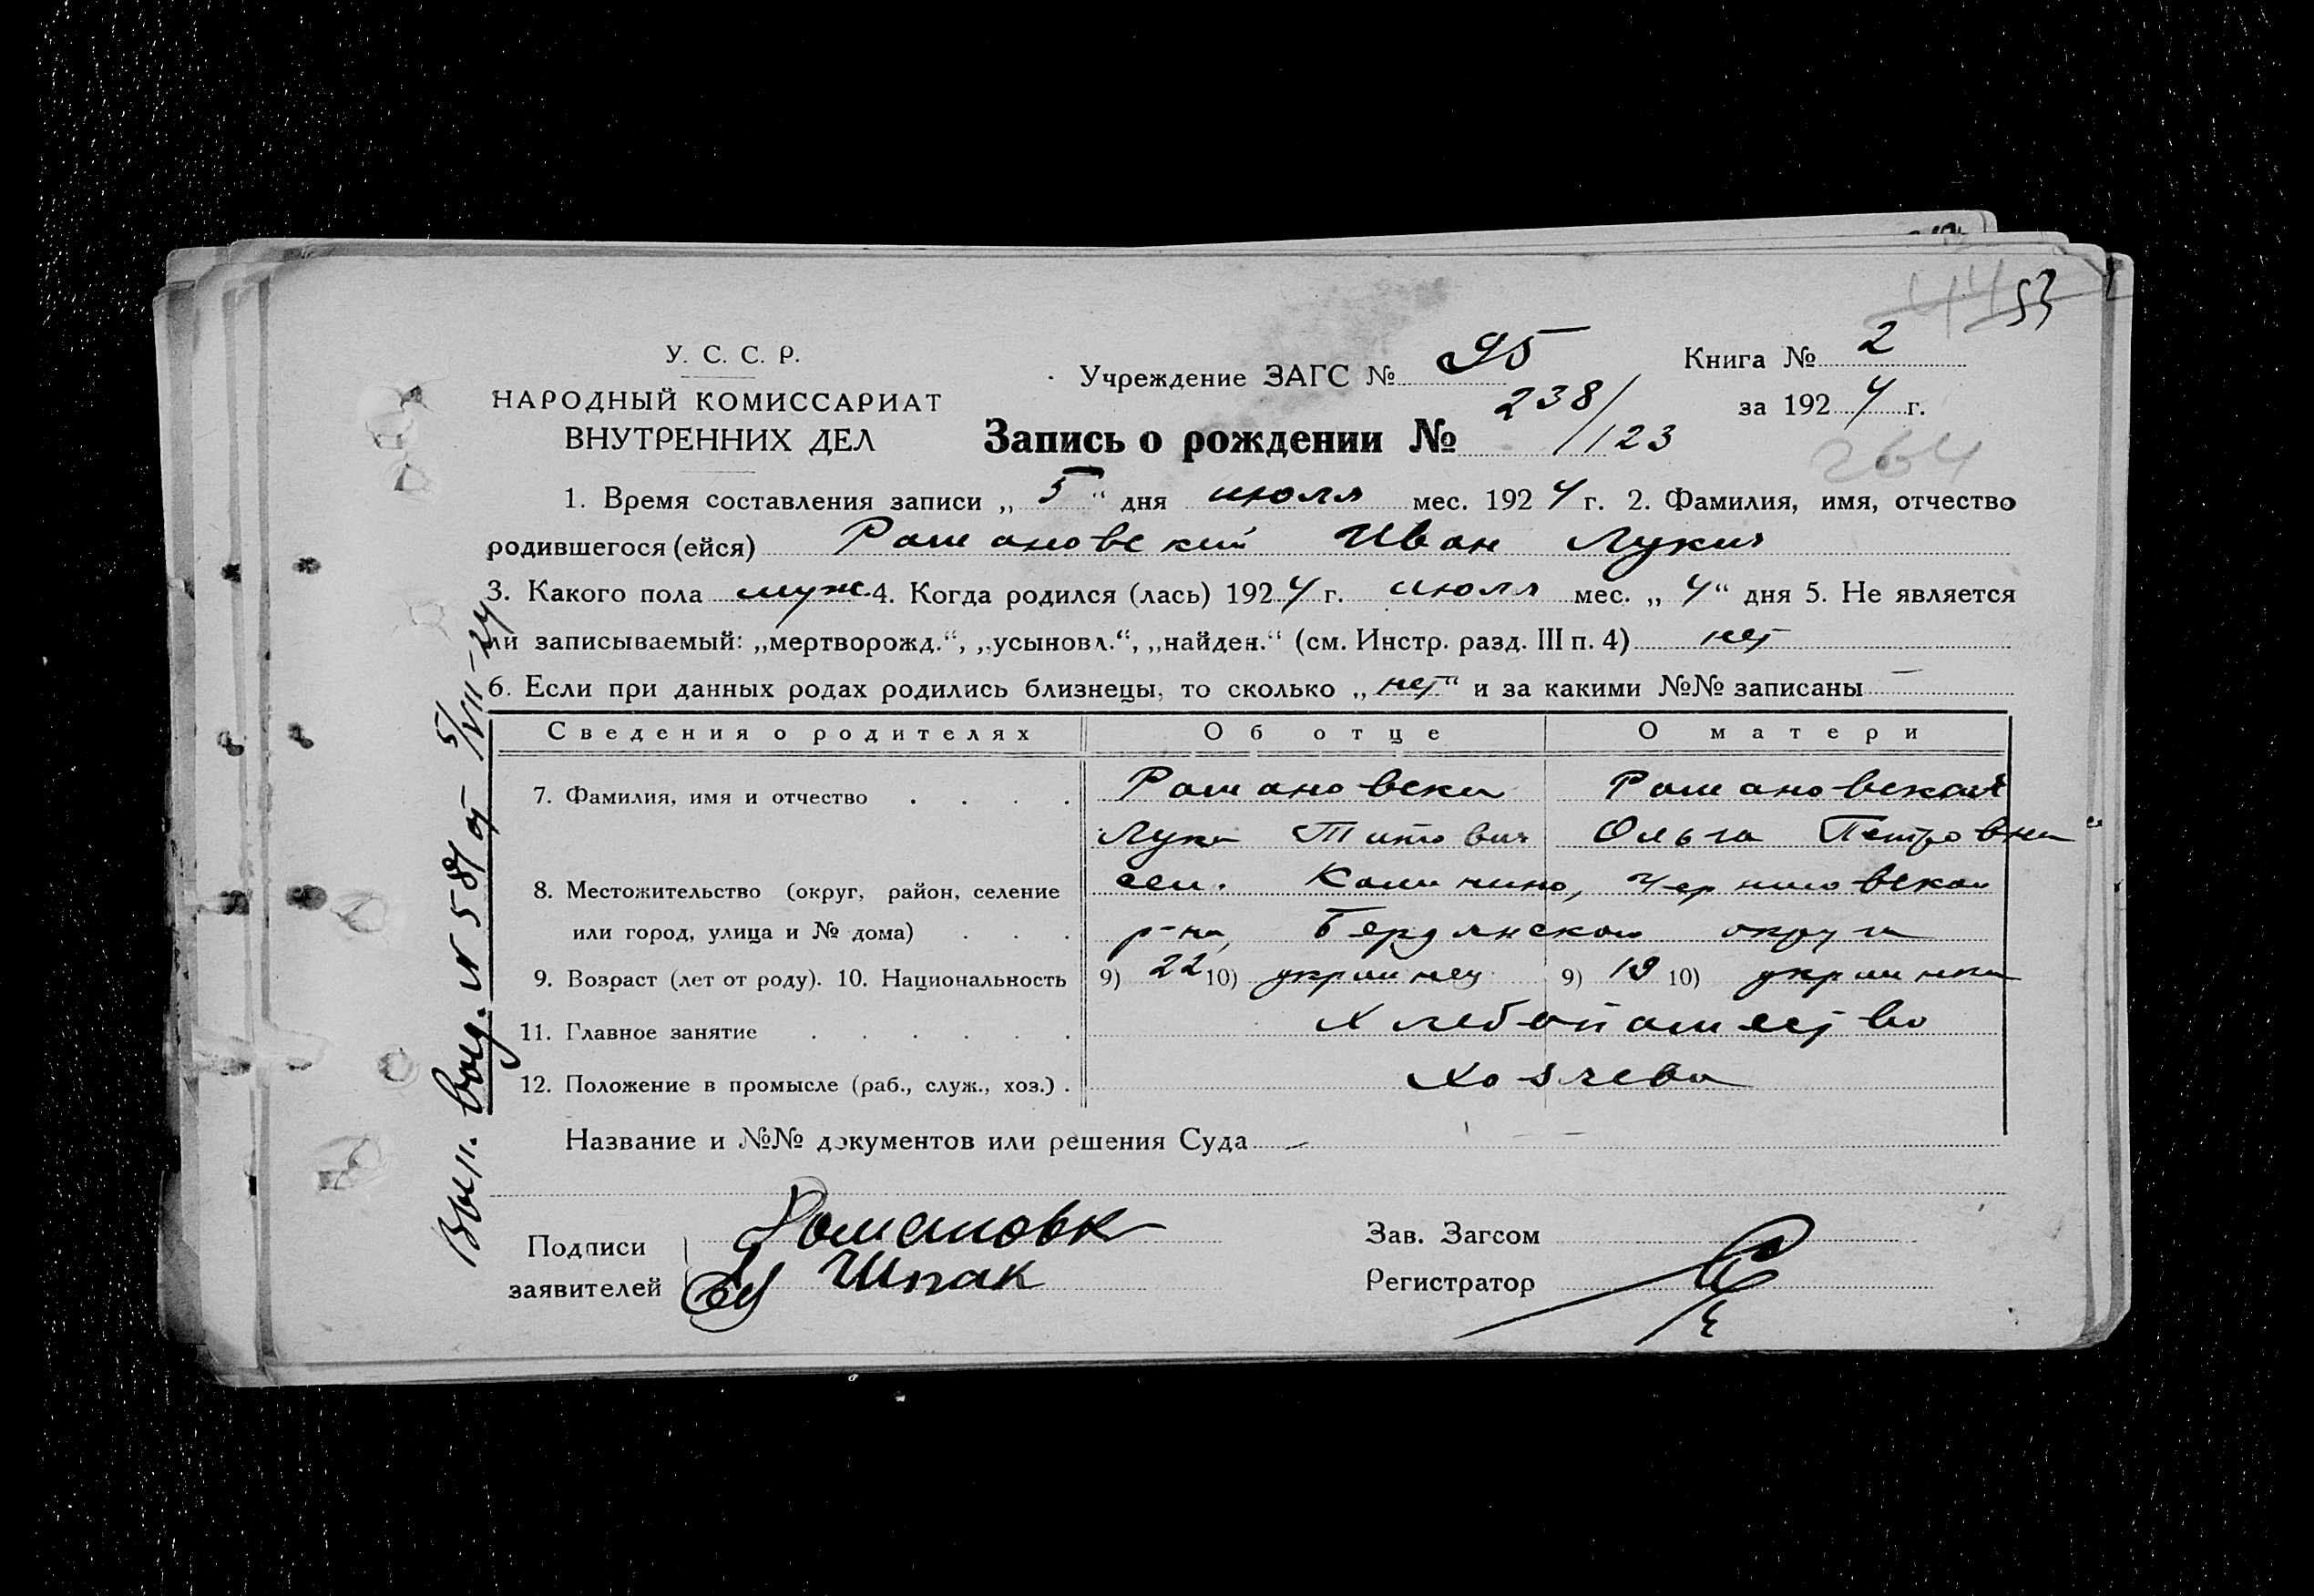 53
У. С. С. Р.
НАРОДНЫЙ КОМИССАРИАТ
ВНУТРЕННИХ ДЕЛ
Учреждение ЗАГС № 95
Книга № 2
за 1924 г.
Запись о рождении № 238/123
264
1. Время составления записи „5“ дня июля мес. 1924 г. 2. Фамилия, имя, отчество
родившегося (ейся) Романовский Иван Лукич
3. Какого пола муж. 4. Когда родился (лась) 1924 г. июля мес. „4“ дня 5. Не является
ли записываемый: „мертворожд.“, „усыновл.“, „найден.“ (см. Инстр. разд. III п. 4) нет
6. Если при данных родах родились близнецы, то сколько „нет“ и за какими №№ записаны —
Сведения о родителях Об отце О матери
7. Фамилия, имя и отчество . . . . Романовски Романовская
Лука Титович Ольга Петровна
8. Местожительство (округ, район, селение сел. Камчино, Черниговском
или город, улица и № дома) . . . р-на, Бердянском округа
9. Возраст (лет от роду). 10. Национальность 9) 22 10) украинец 9) 19 10) украинка
11. Главное занятие . . . . . . Хлебопашество
12. Положение в промысле (раб., служ., хоз.) . Хозяева
Название и №№ документов или решения Суда —
Подписи
заявителей
Романовк
Шпак
Зав. Загсом
Регистратор
Вып. выд. № 581 от 5/VII-24